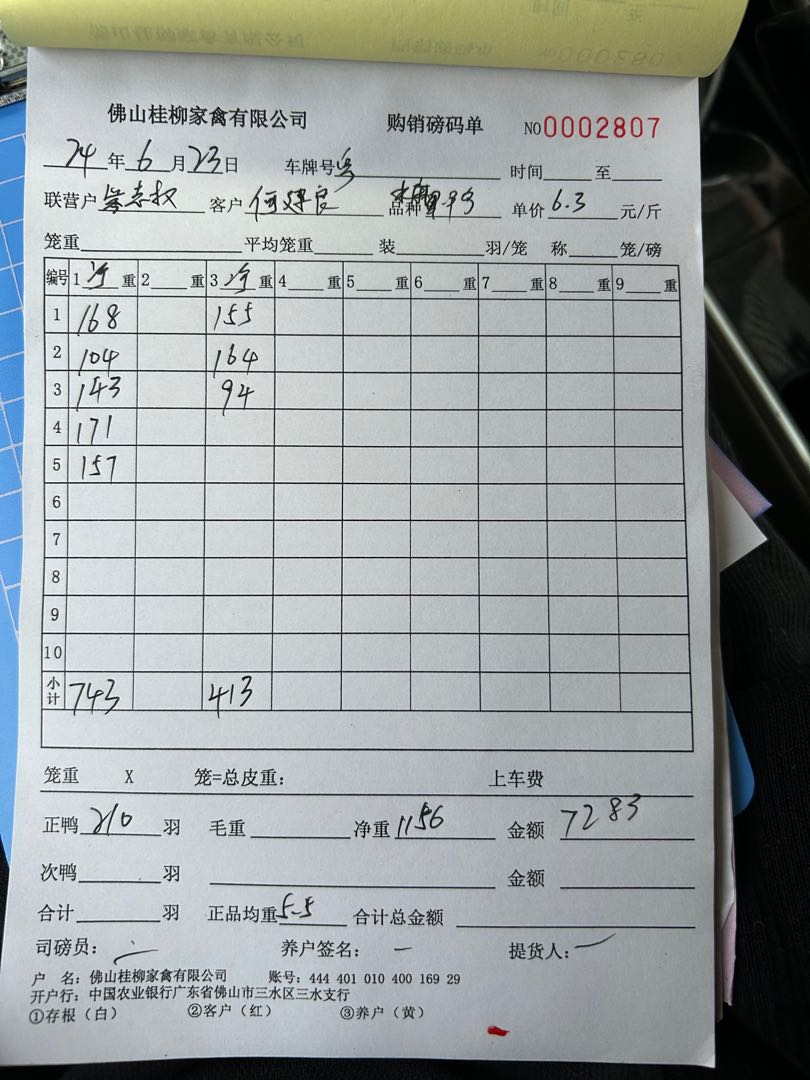 佛山桂柳家禽有限公司 购销磅码单 NO0002807
24 年 6 月 23 日 车牌号 时间 至
联营户 志权 客户 何建良 品种 单价 6.3 元/斤
笼重 平均笼重 装 羽/笼 称 笼/磅
编号 1 净 重 2 重 3 净 重 4 重 5 重 6 重 7 重 8 重 9 重
1 168 155
2 104 164
3 143 94
4 171
5 157
6
7
8
9
10
小计 743 413
笼重 X 笼=总皮重： 上车费
正鸭 210 羽 毛重 净重 1156 金额 7283
次鸭 羽 金额
合计 羽 正品均重 5.5 合计总金额
司磅员： 养户签名： 提货人：
户 名：佛山桂柳家禽有限公司 账号：444 401 010 400 169 29
开户行：中国农业银行广东省佛山市三水区三水支行
①存根（白） ②客户（红） ③养户（黄）